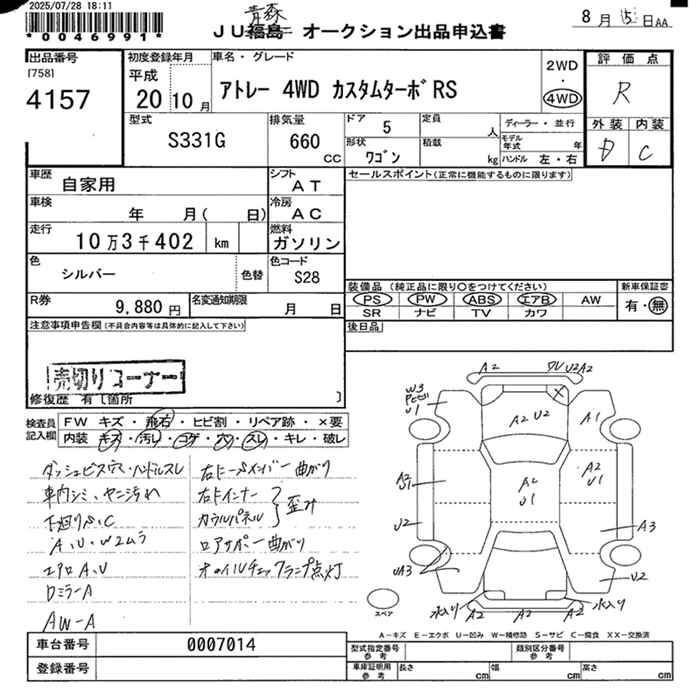 2025/07/28 18:11
*0046991*
青森
JU福島 オークション出品申込書
8月15日AA
出品番号
[758]
4157
初度登録年月
平成
20 10月
車名・グレード
アトレー 4WD カスタムターボRS
2WD
・
4WD
評価点
R
外装 内装
D C
型式
S331G
排気量
660
CC
ドア
5
定員
人
ディーラー・並行
形状
ワゴン
積載
kg
モデル
年式 年
ハンドル 左・右
車歴
自家用
シフト
AT
セールスポイント(正常に機能するものに限ります)
車検
年 月( 日)
冷房
AC
走行
10万3千402 km
燃料
ガソリン
色
シルバー
色替
色コード
S28
装備品 (純正品に限り○をつけてください)
PS PW ABS エアB AW
SR ナビ TV カワ
新車保証書
有・無
R券
9,880円
名変通知期限
月 日
後日品
注意事項申告欄(不具合内容等は具体的に記入して下さい)
売切りコーナー
修復歴 有〔箇所 〕
検査員
記入欄
FW キズ・飛石・ヒビ割・リペア跡・×要
内装・キズ・汚レ・コゲ・穴・スレ・キレ・破レ
ダッシュビス穴・ハンドルスレ
車内シミ・ヤニ汚れ
下廻りS.C
A.U.W2ムラ
エアロA.U
DミラーA
AW-A
右コーナーメンバー曲がり
右Fインナー
カウルパネル
歪み
ロアサポー曲がり
オイルチェックランプ点灯
A2
U2A2
W3
U1
A2 U2
A1
A2
U1
A2
U1
U2
A3
UA3
U2
水入り
水入り
A2
A2
A2
スペア
A-キズ E-エクボ U-凹み W-補修跡 S-サビ C-腐食 XX-交換済
車台番号
0007014
登録番号
型式指定番号
参考
類別区分番号
参考
車庫証明用
参考
長さ
cm
幅
cm
高さ
cm